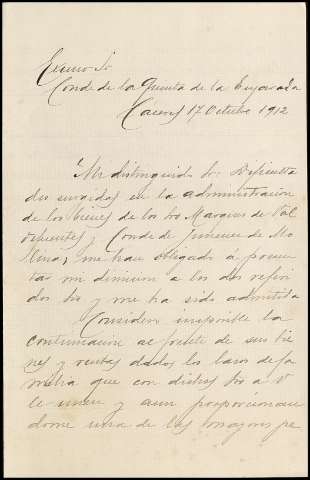 Excmo Sr
Conde de la Quinta de la Enjarada
Caceres 17 Octubre 1912
Mi distinguido Sr: Dificulta
des surgidas en la administración
de los bienes de los Srs Marques de Val
defuentes y Conde de Jimenez de Mo
lina, me han obligado á presen
tar mi dimision a los dos referi
dos Srs y me ha sido admitida
Considero imposible la
continuación al frente de sus bie
nes y rentas dados los lazos de fa
milia que con dichos Srs a V
le unen y aun proporcionan
dome una de las mayores pe